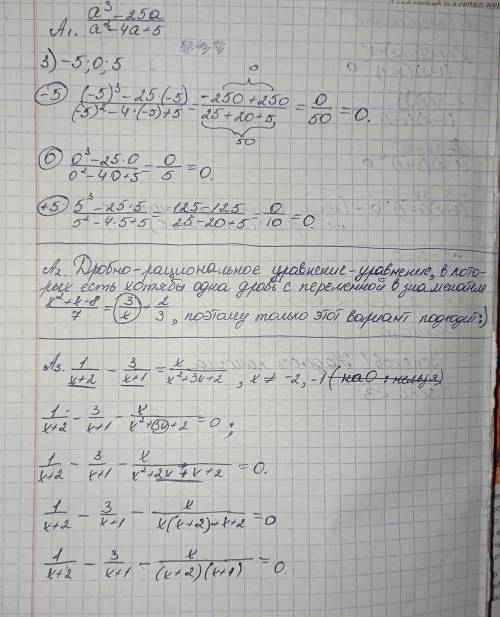 A₁. (a³ − 25a)/(a² − 4a + 5)
3) −5; 0; 5
−5 ((−5)³ − 25·(−5))/((−5)² − 4·(−5) + 5) = (−250 + 250)/(25 + 20 + 5) = 0/50 = 0.
0
50
0 (0³ − 25·0)/(0² − 4·0 + 5) = 0/5 = 0.
+5 (5³ − 25·5)/(5² − 4·5 + 5) = (125 − 125)/(25 − 20 + 5) = 0/10 = 0.
A₂. Дробно-рациональное уравнение - уравнение, в кото-
рых есть хотябы одна дробь с переменной в знаменателе
(x² + x − 8)/7 = 3/x − 2/3, поэтому только этот вариант подходит:)
A₃. 1/(x+2) − 3/(x+1) = x/(x²+3x+2), x ≠ −2, −1 (на 0 : нельзя)
1/(x+2) − 3/(x+1) − x/(x²+3x+2) = 0;
1/(x+2) − 3/(x+1) − x/(x²+2x+x+2) = 0.
1/(x+2) − 3/(x+1) − x/(x(x+2)+x+2) = 0
1/(x+2) − 3/(x+1) − x/((x+2)(x+1)) = 0.